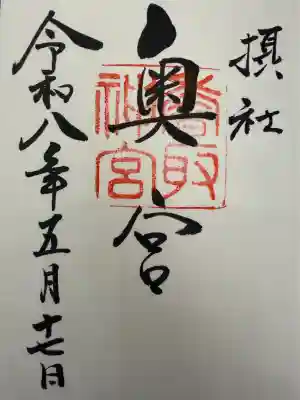 摂社
奥宮
香取神宮
令和八年五月十七日